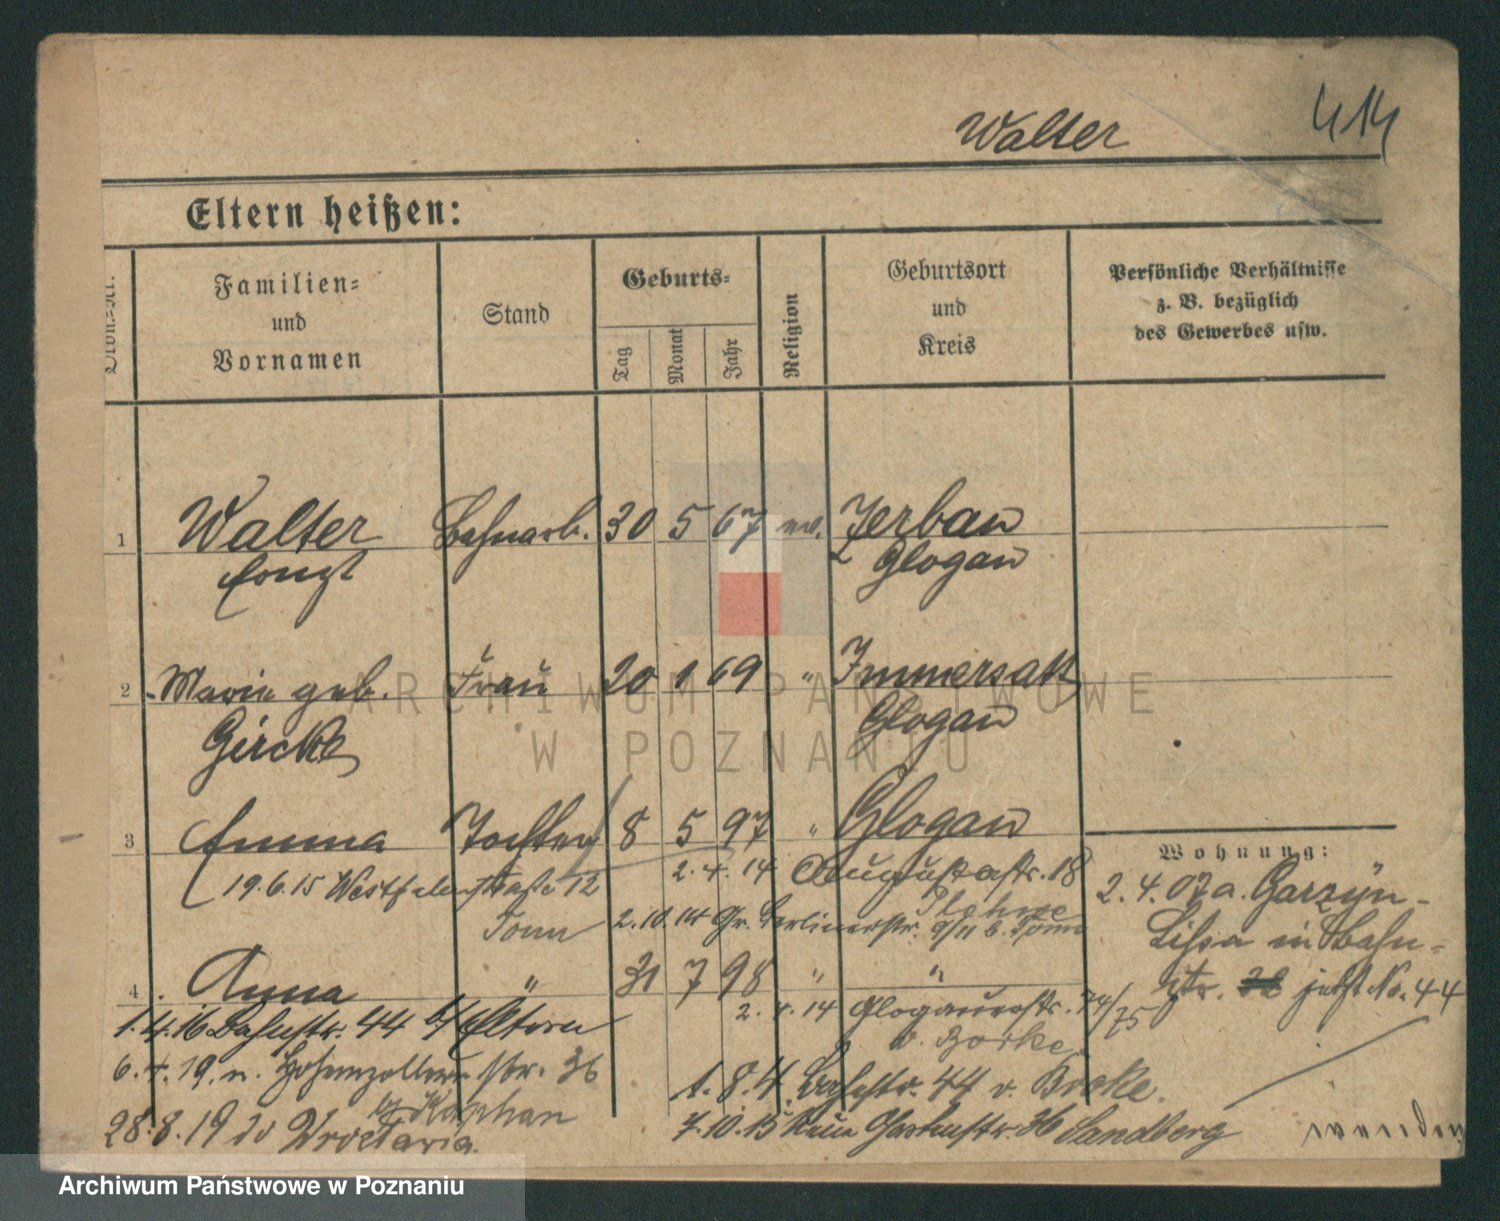 Walter 414
Eltern heißen:
Ordn.-Nr.
Familien-
und
Vornamen
Stand
Geburts-
Tag
Monat
Jahr
Religion
Geburtsort
und
Kreis
Persönliche Verhältnisse
z. B. bezüglich
des Gewerbes usw.
1 Walter Bahnarb. 30 5 67 ev. Jerbau
Ernst Glogau
2 Marie geb. Frau 20 1 69 " Immersatt
Gircke Glogau
3 Emma Tochter 8 5 97 " Glogau
Wohnung:
19.6.15 Westfalenstraße 12 2.4.14 Augustastr. 18
2.4.07 a. Garzyn-
2.10.14 Gr. Berlinerstr.
Lissa in Bahn-
4 Anna " 31 7 98 " "
str. jetzt No. 44
2.4.14 Glogauerstr. 74/75
1.4.16 Bahnstr. 44 Eltern
6.4.19. n. Hohenzollernstr. 36
1.8.4. Bahnstr. 44
28.8.19
7.10.15 Neue Gartenstr. 36 Sandberg
wenden
ARCHIWUM PAŃSTWOWE
W POZNANIU
Archiwum Państwowe w Poznaniu